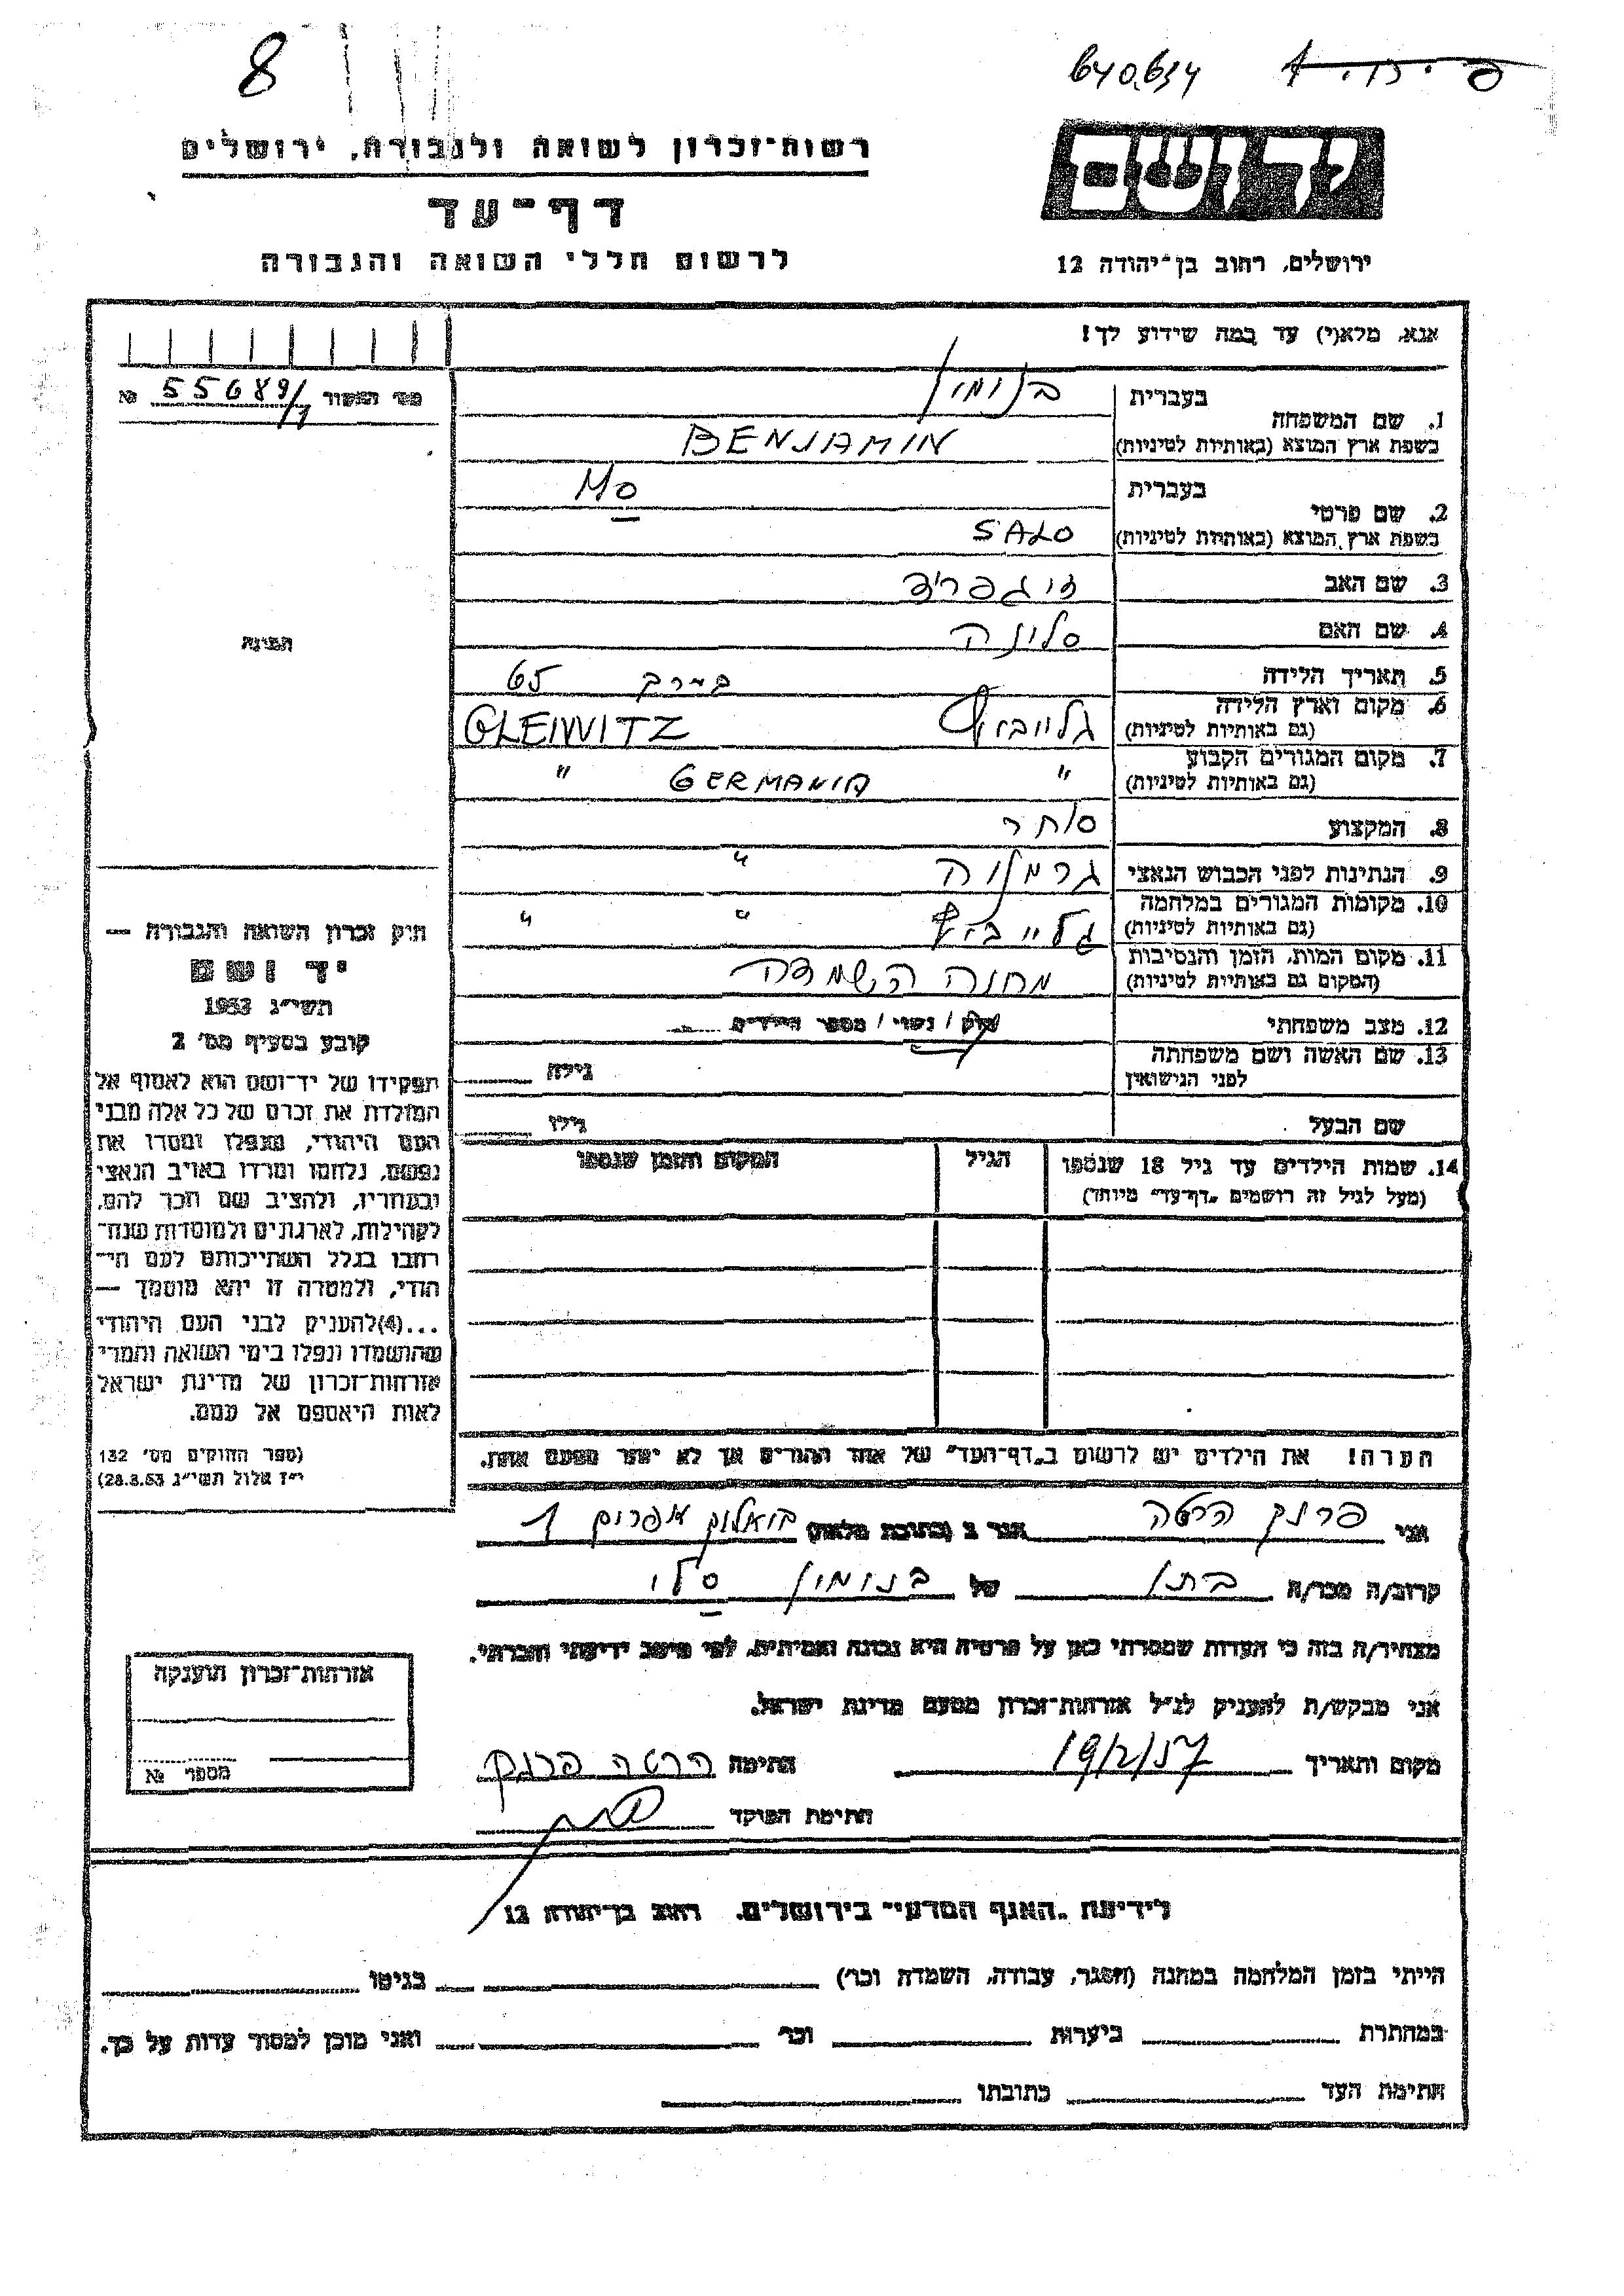 8
640.634
רשות־זכרון לשואה ולגבורה, ירושלים
דף־עד
לרשום חללי השואה והגבורה
יד ושם
ירושלים, רחוב בן־יהודה 12
אנא, מלא(י) עד כמה שידוע לך!
№ 55689/1
1. שם המשפחה
בעברית בנימין
בשפת ארץ המוצא (באותיות לטיניות) BENJAMIN
2. שם פרטי
בעברית
בשפת ארץ המוצא (באותיות לטיניות) SALO
3. שם האב זיגפריד
4. שם האם סלינה
5. תאריך הלידה בערך 65
6. מקום וארץ הלידה (גם באותיות לטיניות) גלייביץ GLEIWITZ
7. מקום המגורים הקבוע (גם באותיות לטיניות) " GERMANIA "
8. המקצוע סוחר
9. הנתינות לפני הכבוש הנאצי גרמניה "
10. מקומות המגורים במלחמה (גם באותיות לטיניות) גלייביץ " "
11. מקום המות, הזמן והנסיבות (המקום גם באותיות לטיניות) מחנה השמדה
12. מצב משפחתי רווק / נשוי / מספר הילדים
13. שם האשה ושם משפחתה לפני הנישואין גילה
שם הבעל גילו
14. שמות הילדים עד גיל 18 שנספו הגיל המקום והזמן שנספו
(מעל לגיל זה רושמים „דף־עד" מיוחד)
הערה! את הילדים יש לרשום ב„דף־העד" של אחד ההורים אך לא יותר מפעם אחת.
התמונה
חוק זכרון השואה והגבורה —
יד ושם
תשי"ג 1953
קובע בסעיף מס' 2
תפקידו של יד־ושם הוא לאסוף אל
המולדת את זכרם של כל אלה מבני
העם היהודי, שנפלו ומסרו את
נפשם, נלחמו ומרדו באויב הנאצי
ובעוזריו, ולהציב שם וזכר להם,
לקהילות, לארגונים ולמוסדות שנח־
רבו בגלל השתייכותם לעם הי־
הודי, ולמטרה זו יהא מוסמך —
...(4)להעניק לבני העם היהודי
שהושמדו ונפלו בימי השואה והמרי
אזרחות־זכרון של מדינת ישראל
לאות היאספם אל עמם.
(ספר החוקים מס' 132
י"ז אלול תשי"ג 28.8.53)
אני פרנק הרטה הגר ב (כתובת מלאה) אפרים 1
קרוב/ה מכר/ה בתו של בנימין סלו
מצהיר/ה בזה כי העדות שמסרתי כאן על פרטיה היא נכונה ואמיתית, לפי מיטב ידיעתי והכרתי.
אני מבקש/ת להעניק לנ"ל אזרחות־זכרון מטעם מדינת ישראל.
מקום ותאריך 19/2/57 חתימה הרטה פרנק
חתימת הפוקד
אזרחות־זכרון הוענקה
מספר №
לידיעת „האגף המדעי" בירושלים. רחוב בן־יהודה 12
הייתי בזמן המלחמה במחנה (הסגר, עבודה, השמדה וכו') בגיטו
במחתרת ביערות וכו' ואני מוכן למסור עדות על כך.
חתימת העד כתובתו